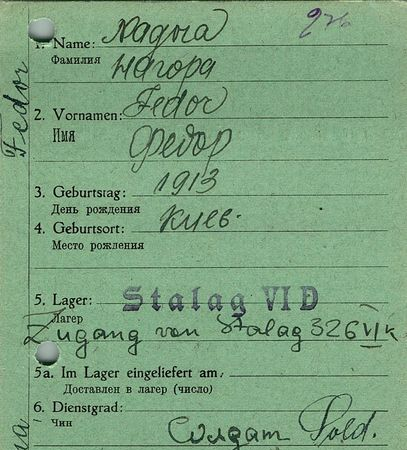 1. Name: Nagora
Фамилия Нагора
2. Vornamen: Fedor
Имя Федор
3. Geburtstag: 1913
День рождения
4. Geburtsort: Киев.
Место рождения
5. Lager: Stalag VI D
Лагер
Zugang von Stalag 326 VI K
5a. Im Lager eingeliefert am:
Доставлен в лагер (число)
6. Dienstgrad:
Чин Солдат Sold.
Fedor